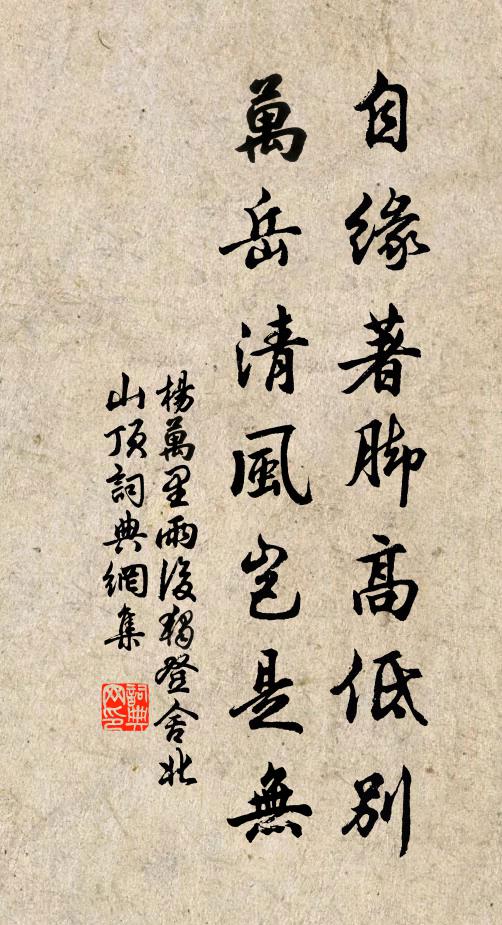 自緣著脚高低別
萬岳清風豈是無
楊萬里雨後獨登舍北
山頂詞典網集
詞典网印